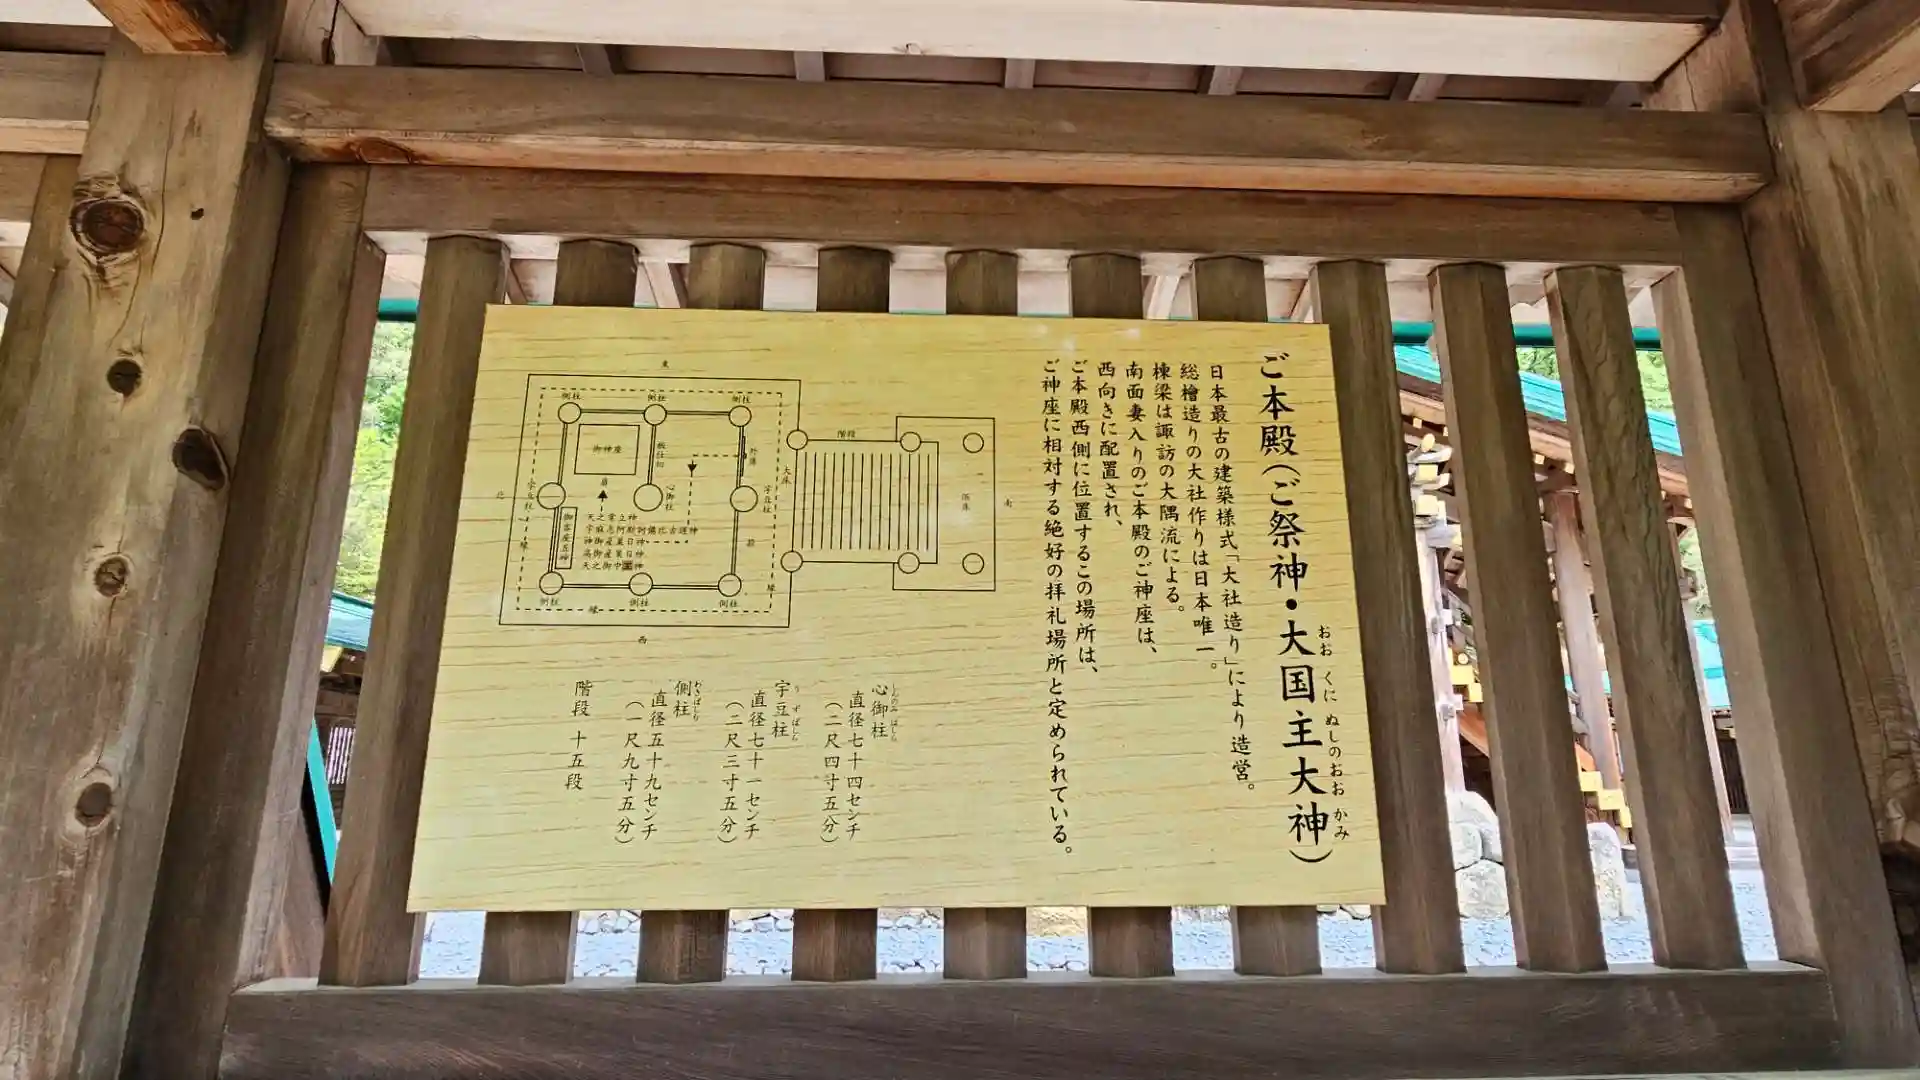 ご本殿(ご祭神・大国主大神)
おおくにぬしのおおかみ
日本最古の建築様式「大社造り」により造営。
総檜造りの大社作りは日本唯一。
棟梁は諏訪の大隅流による。
南面妻入りのご本殿のご神座は、
西向きに配置され、
ご本殿西側に位置するこの場所は、
ご神座に相対する絶好の拝礼場所と定められている。
心御柱
直径七十四センチ
(二尺四寸五分)
宇豆柱
うずばしら
直径七十一センチ
(二尺三寸五分)
側柱
わきばしら
直径五十九センチ
(一尺九寸五分)
階段 十五段
東
西
南
北
側柱
側柱
側柱
御神座
板仕切
心御柱
宇豆柱
宇豆柱
御客座五神
天之常立神
宇麻志阿斯訶備比古遅神
神御産巣日神
高御産巣日神
天之御中主神
側柱
側柱
側柱
縁
縁
縁
大床
階段
浜床